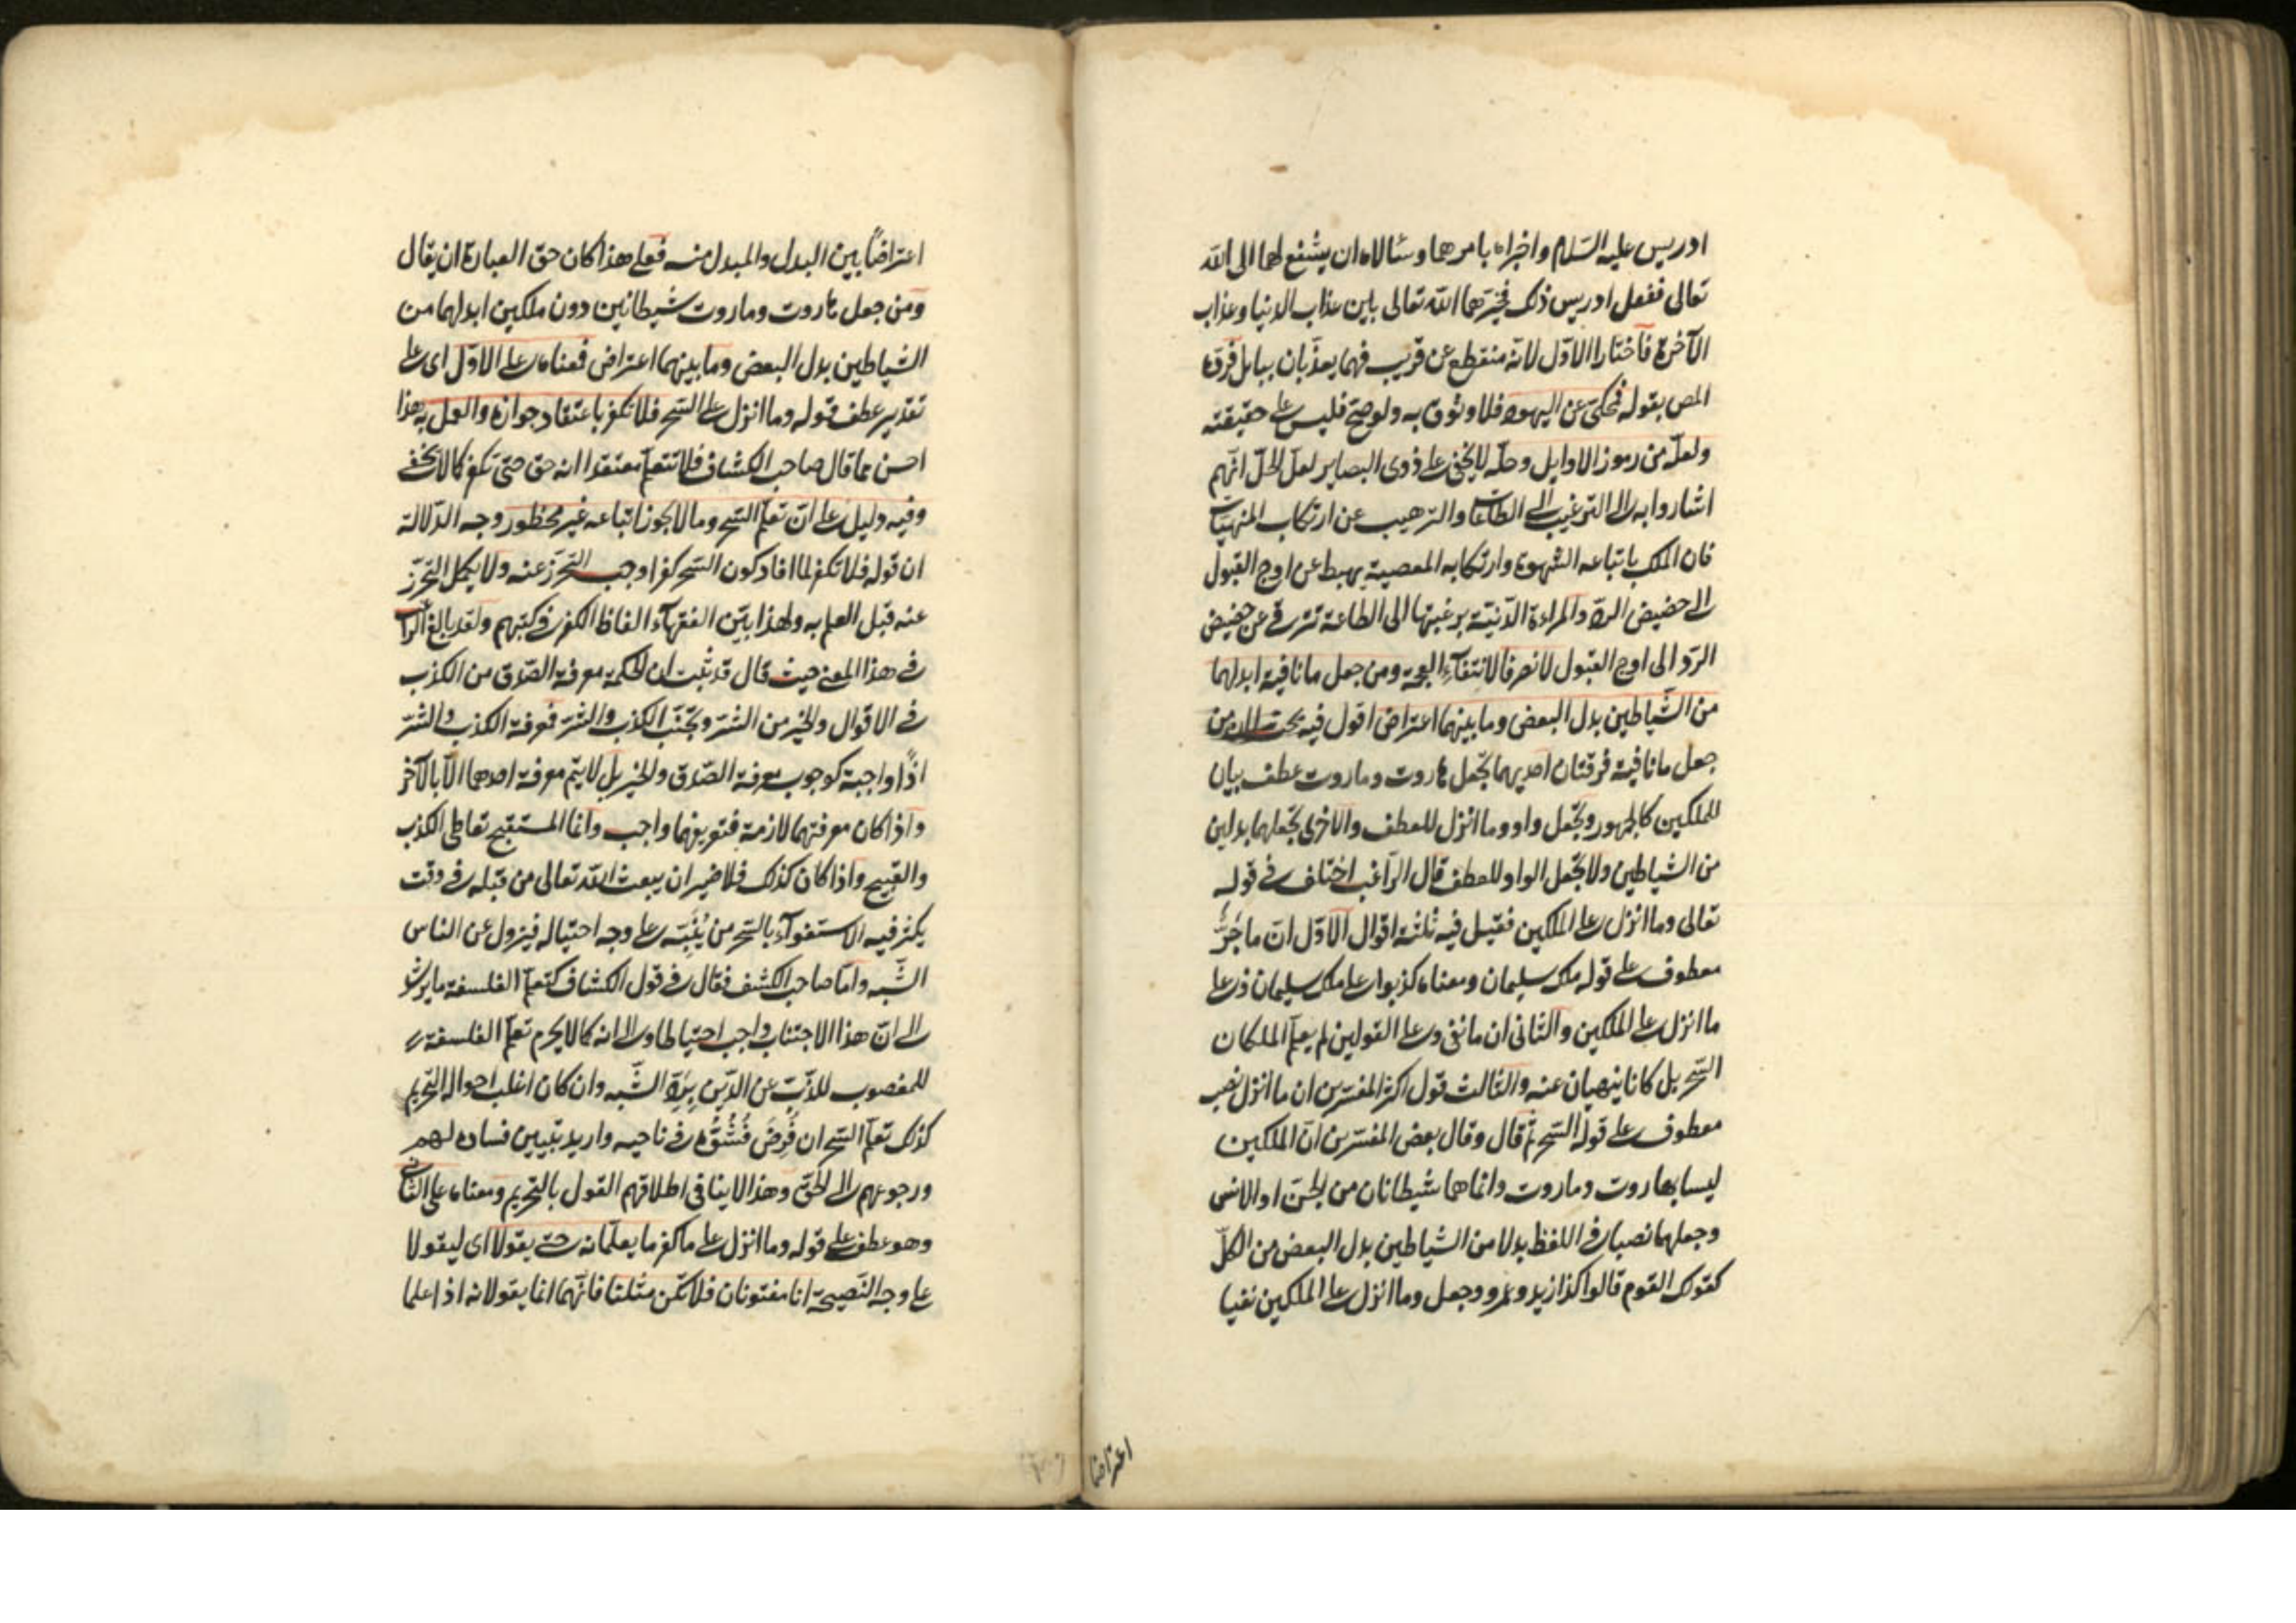 ادريس عليه السّلام واخبراه بامرهما وسئالاه ان يشفع لهما الى الله
تعالى ففعل ادريس ذلك فخيّرهما الله تعالى بين عذاب الدنيا وعذاب
الآخرة فاختارا الاوّل لانّه منقطع عن قريب فهما يعذّبان ببابل فردّه
المص بقوله فمحكىّ عن اليهود فلا وثوق به ولو صحّ فليس على حقيقته
ولعلّه من رموز الاوايل وحلّه لا يخفى على ذوى البصاير لعل الحلّ انّهم
اشاروا به الى الترغيب الى الطاعات والترهيب عن ارتكاب المنهيّات
فان الملك باتباعه الشهوة وارتكابه المعصية يهبط عن اوج القبول
الى حضيض الردّ والمراءة الدّنيّة برغبتها الى الطاعة تترقى عن حضيض
الردّ الى اوج القبول لانصرفا لانتفآء العجمة ومن جعل ما نافية ابدلهما
من الشّياطين بدل البعض وما بينهما اعتراض اقول فيه بحث لان من
جعل ما نافية فرقتان احديهما يجعل هاروت وماروت عطف بيان
للملكين كالجمهور ويجعل واو وما انزل للعطف والاخرى يجعلهما بدلين
من الشياطين ولا يجعل الواو للعطف قال الراغب اختلف فى قوله
تعالى وما انزل على الملكين فقيل فيه ثلثة اقوال الاوّل انّ ما جرٌّ
معطوف على قوله ملك سليمان ومعناه كذبوا على ملك سليمان وعلى
ما انزل على الملكين والثانى ان ما نفى وعلى القولين لم يعلّم الملكان
السّحر بل كانا ينهيان عنه والثالث قول اكثر المفسّرين ان ما انزل نصب
معطوف على قوله السّحر ثم قال وقال بعض المفسّرين انّ الملكين
ليسا بهاروت وماروت وانما هما شيطانان من الجنّ او الانس
وجعلهما نصبا فى اللفظ بدلا من الشياطين بدل البعض من الكلّ
كقولك القوم قالوا كذا زيد وعمرو وجعل وما انزل على الملكين نفيا
اعتراضا
اعتراضاً بين البدل والمبدل منه فعلى هذا كان حقّ العبارة ان يقال
ومن جعل هاروت وماروت شيطانين دون ملكين ابدلهما من
الشياطين بدل البعض وما بينهما اعتراض فمعناه على الاوّل اى على
تقدير عطف قوله وما انزل على السّحر فلا تكفر باعتقاد جوازه والعمل به هذا
احسن مما قال صاحب الكشاف فلا تتعلّم معتقدا انه حق حتى تكفر كما لا يخفى
وفيه دليل على انّ تعلّم السّحر وما لا يجوز اتباعه غير محظور وجه الدّلالة
ان قوله فلا تكفر لما افاد كون السّحر كفرا وجب التحرّز عنه ولا يمكن التحرّز
عنه قبل العلم به ولهذا بيّن الفقهآء الفاظ الكفر فى كتبهم ولقد بالغ الراغب
فى هذا المعنى حيث قال قد ثبت ان الحكمة معرفة الصّدق من الكذب
فى الاقوال والخير من الشّرّ وتجنّب الكذب والشرّ فمعرفة الكذب والشّرّ
اذًا واجبة كوجوب معرفة الصّدق والخير بل لا يتمّ معرفة احدهما الّا بالآخر
واذا كان معرفتهما لازمة فتعريفهما واجب وانما المستقبح تعاطى الكذب
والقبيح واذا كان كذلك فلا ضير ان يبعث الله تعالى من قبله فى وقت
يكثر فيه الاستغوآء بالسّحر من يُنَبّه على وجه احتياله فيزول عن الناس
الشّبه وامّا صاحب الكشف فقال فى قول الكشاف كتعلّم الفلسفة ما يرشد
الى انّ هذا الاجتناب واجب احتياطا والى انه كما لا يحرم تعلّم الفلسفة
للمنصوب للذّبّ عن الدّين بردّ الشّبه وان كان اغلب احواله التحريم
كذلك تعلّم السّحر ان فُرِضَ فُشُوُّه فى ناحيه واريد تبيين فساده لهم
ورجوعهم الى الحقّ وهذا لا ينافى اطلاقهم القول بالتحريم ومعناه على الثانى
وهو عطف على قوله وما انزل على ما كفر ما يعلّمانه حتى يقولا اى ليقولا
على وجه النّصيحة انا مفتونان فلا تكن مثلنا فانّهما انما يقولانه اذا علما